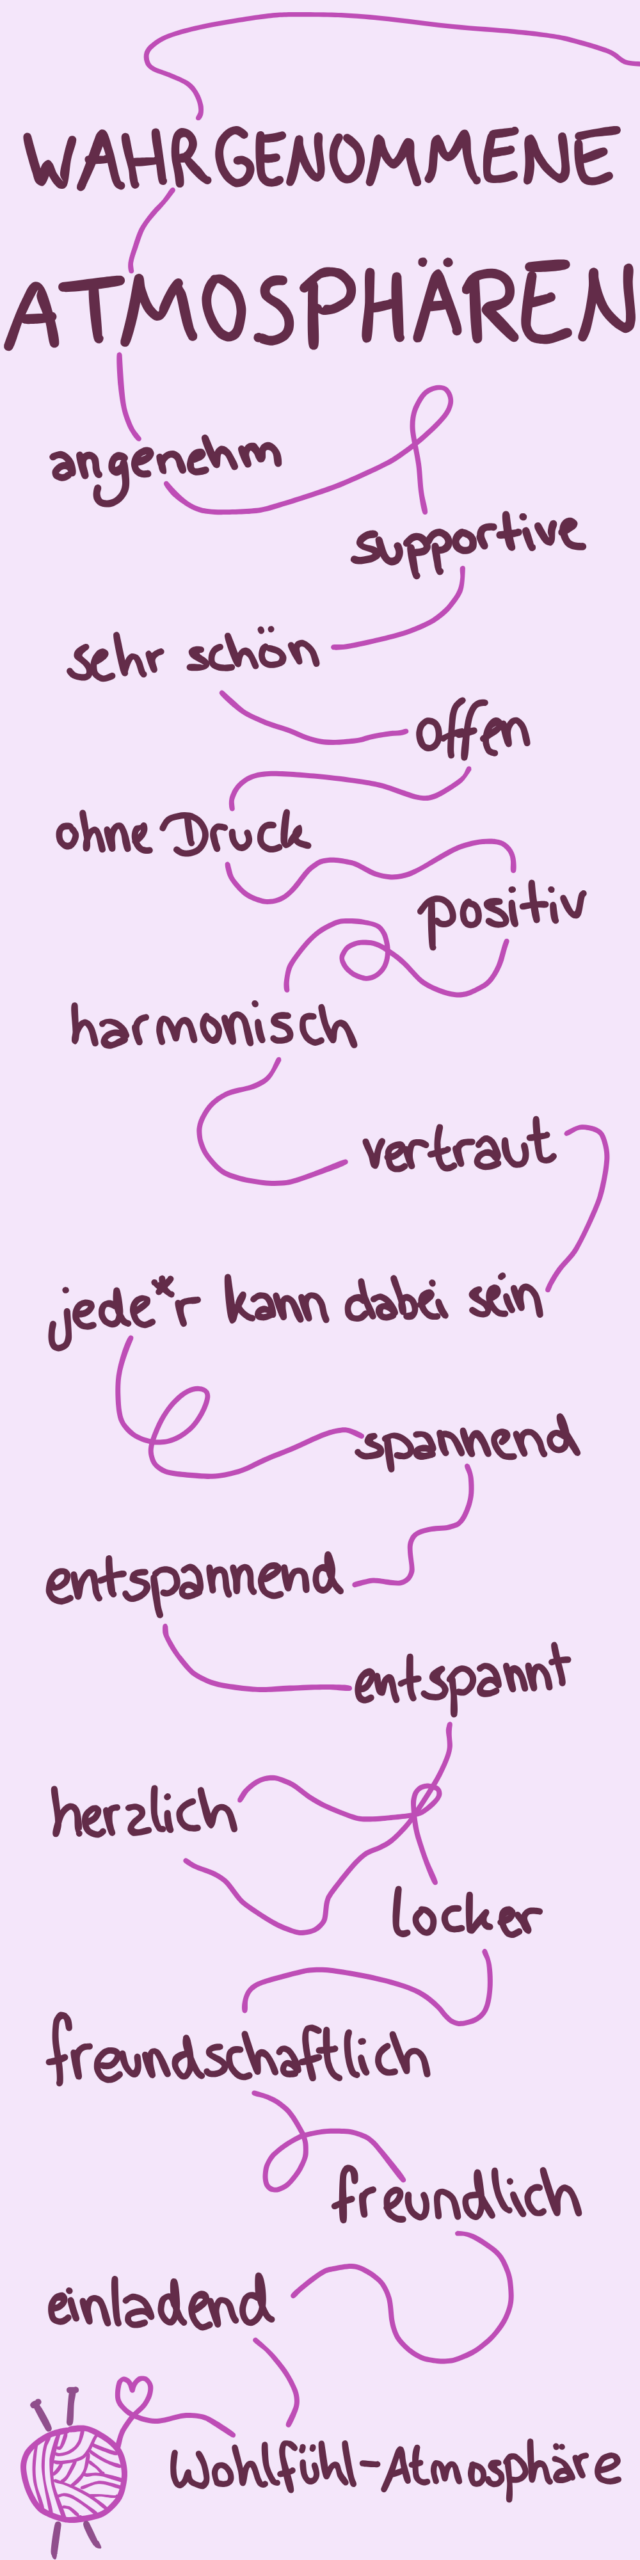 WAHRGENOMMENE
ATMOSPHÄREN
angenehm
supportive
sehr schön
offen
ohne Druck
positiv
harmonisch
vertraut
jede*r kann dabei sein
spannend
entspannend
entspannt
herzlich
locker
freundschaftlich
freundlich
einladend
Wohlfühl-Atmosphäre